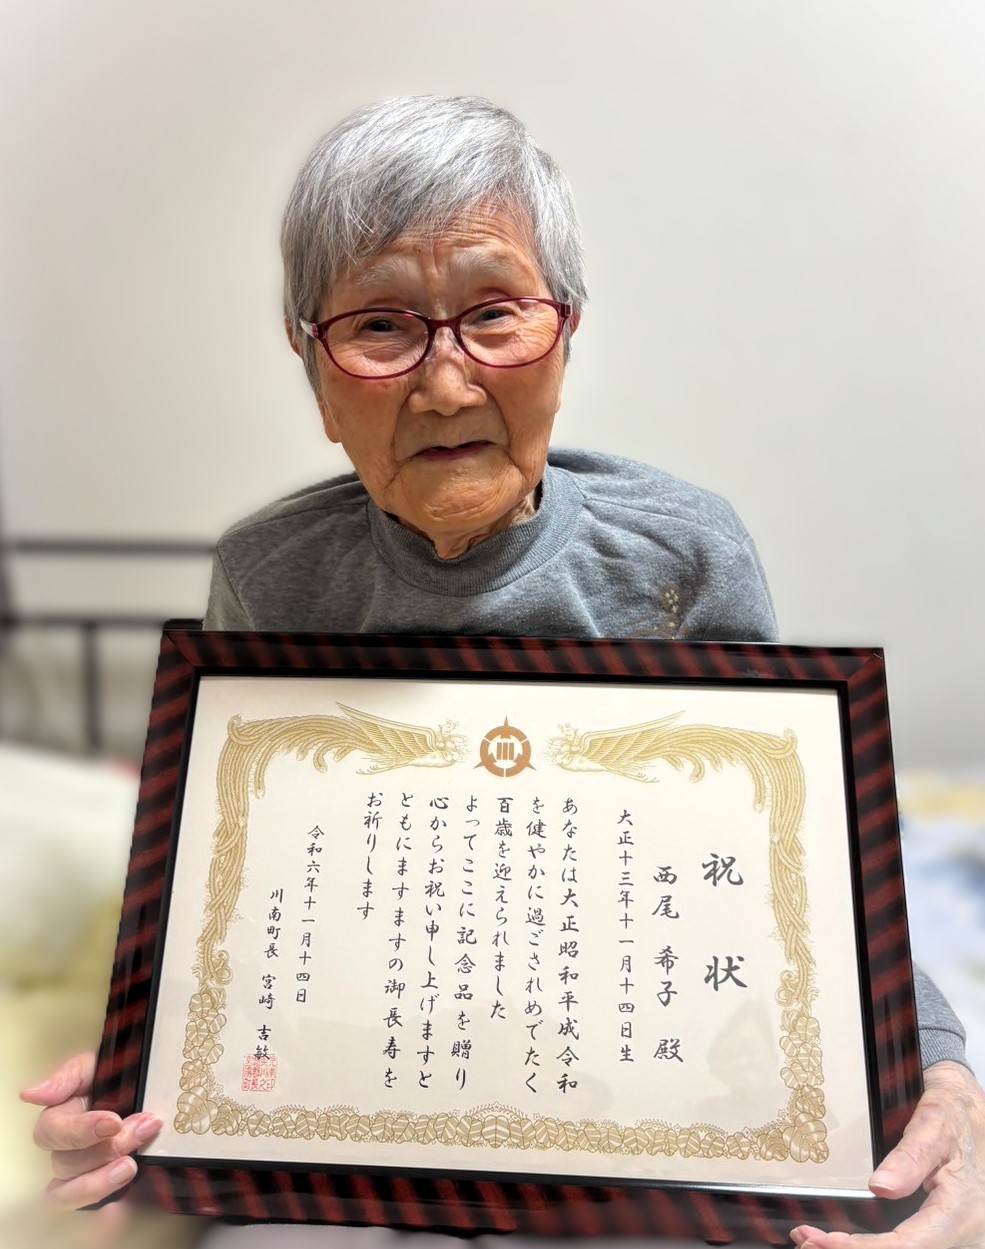 祝状
西尾 希子 殿
大正十三年十一月十四日生
あなたは大正昭和平成令和
を健やかに過ごされめでたく
百歳を迎えられました
よってここに記念品を贈り
心からお祝い申し上げますと
ともにますますの御長寿を
お祈りします
令和六年十一月十四日
川南町長 宮崎 吉敏
川